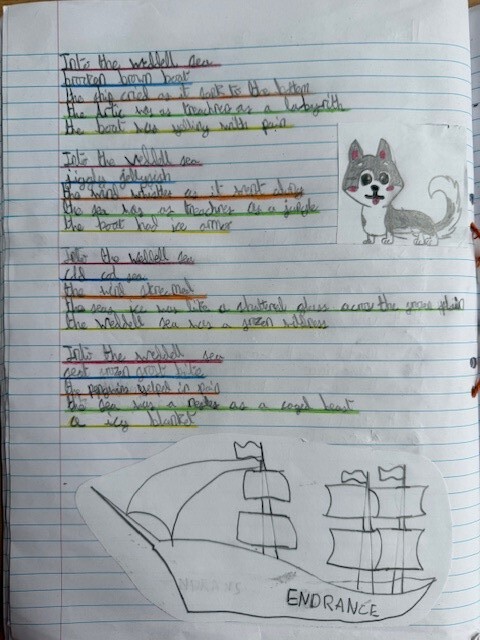 Into the weddell sea
brozen brown boat
the ship cried as it sank to the bottom
the Artic was as treachres as a labyrith
the boat was yelling with pain
Into the weddell sea
jiggly jellyfish
the wind whistles as it went along
the sea was as treachres as a jungle
the boat had ice armor
Into the weddell sea
cold cod sea
the wind
the sea ice was like a shattered glass across the plain
the weddell sea was a frozen
Into the weddell sea
frost bite
the penguins yelped in pain
the sea was a as a caged beast
a icy blanket
ENDRANCE